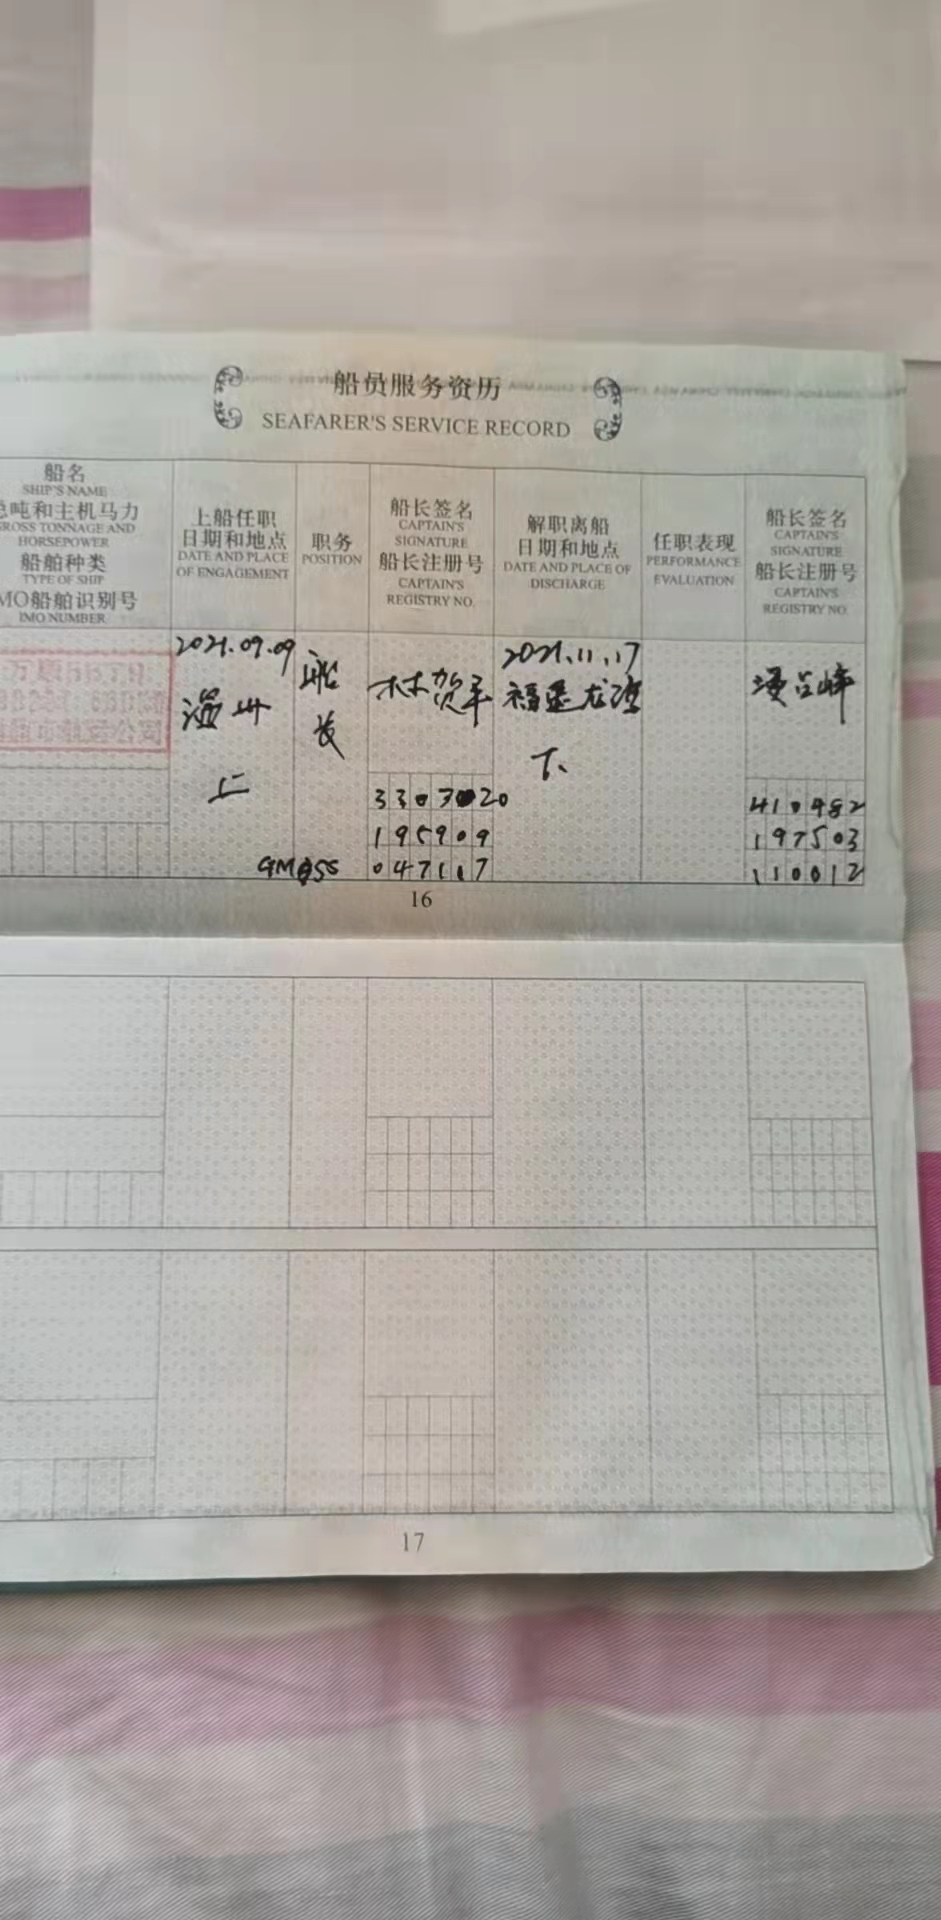 船员服务资历
SEAFARER'S SERVICE RECORD
船名
SHIP'S NAME
总吨和主机马力
GROSS TONNAGE AND
HORSEPOWER
船舶种类
TYPE OF SHIP
IMO船舶识别号
IMO NUMBER
上船任职
日期和地点
DATE AND PLACE
OF ENGAGEMENT
职务
POSITION
船长签名
CAPTAIN'S
SIGNATURE
船长注册号
CAPTAIN'S
REGISTRY NO.
解职离船
日期和地点
DATE AND PLACE OF
DISCHARGE
任职表现
PERFORMANCE
EVALUATION
船长签名
CAPTAIN'S
SIGNATURE
船长注册号
CAPTAIN'S
REGISTRY NO.
2021.09.09
温州
上
船
长
GMDSS
林贺平
330302
195909
047117
2021.11.17
福建
下
410482
197503
110012
16
17